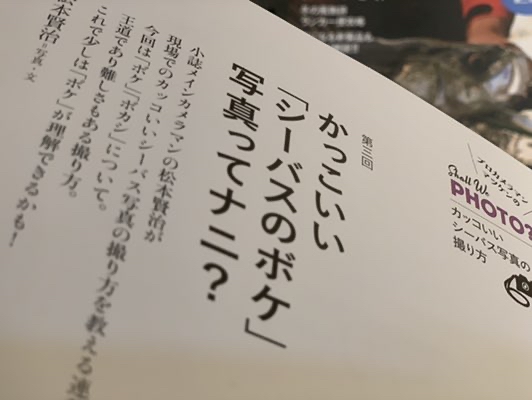 プロカメラマン
マツケンの
Shall We
PHOTO?
カッコいい
シーバス写真の
撮り方
第三回
かっこいい
「シーバスのボケ」
写真ってナニ?
小誌メインカメラマンの松本賢治が
現場でのカッコいいシーバス写真の撮り方を教える連
今回は「ボケ」「ボカシ」について。
王道であり難しさもある撮り方。
これで少しは「ボケ」が理解できるかも!
松本賢治 写真・文